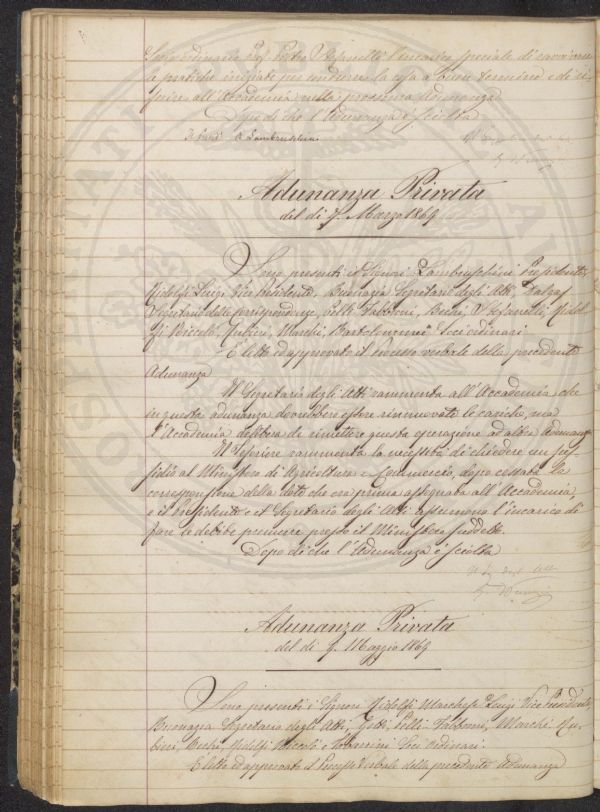 Sociordinario Prof. Pietro Stefanelli l'incarico speciale di ravvivare
le pratiche iniziate per condurre la cosa a buon termine e di ri-
ferire all'Accademia nella prossima Adunanza
Dopo di che l'Adunanza è sciolta
R. Lambruschini
Adunanza Privata
del dì 7. Marzo 1869
Sono presenti i Signori Lambruschini Presidente
Ridolfi Luigi Vice Presidente, Buonazia Segretario degli Atti,
Segretario delle corrispondenze, Pelli Fabbroni, Bechi, Stefanelli, Ridol-
fi Niccolò, Marchi, Bartolommei Soci ordinari.
È letto ed approvato il Processo verbale della precedente
Adunanza
Il Segretario degli Atti rammenta all'Accademia che
in questa adunanza dovrebbero essere rinnuovate le cariche, ma
l'Accademia delibera di rimettere questa operazione ad altra Adunanza
Il Tesoriere rammenta la necessità di chiedere un sus-
sidio al Ministero di Agricoltura e Commercio, dopo cessata la
corresponsione della dote che era prima assegnata all'Accademia,
e il Presidente e il Segretario degli Atti assumono l'incarico di
fare le debite premure presso il Ministero suddetto.
Dopo di che l'Adunanza è sciolta
Adunanza Privata
del dì 9. Maggio 1869
Sono presenti i Signori Ridolfi Marchese Luigi Vice Presidente,
Buonazia Segretario degli Atti, Pelli Fabbroni, Marchi, Cu-
bini, Bechi, Ridolfi Niccolò Soci ordinari.
È letto ed approvato il Processo verbale della precedente Adunanza